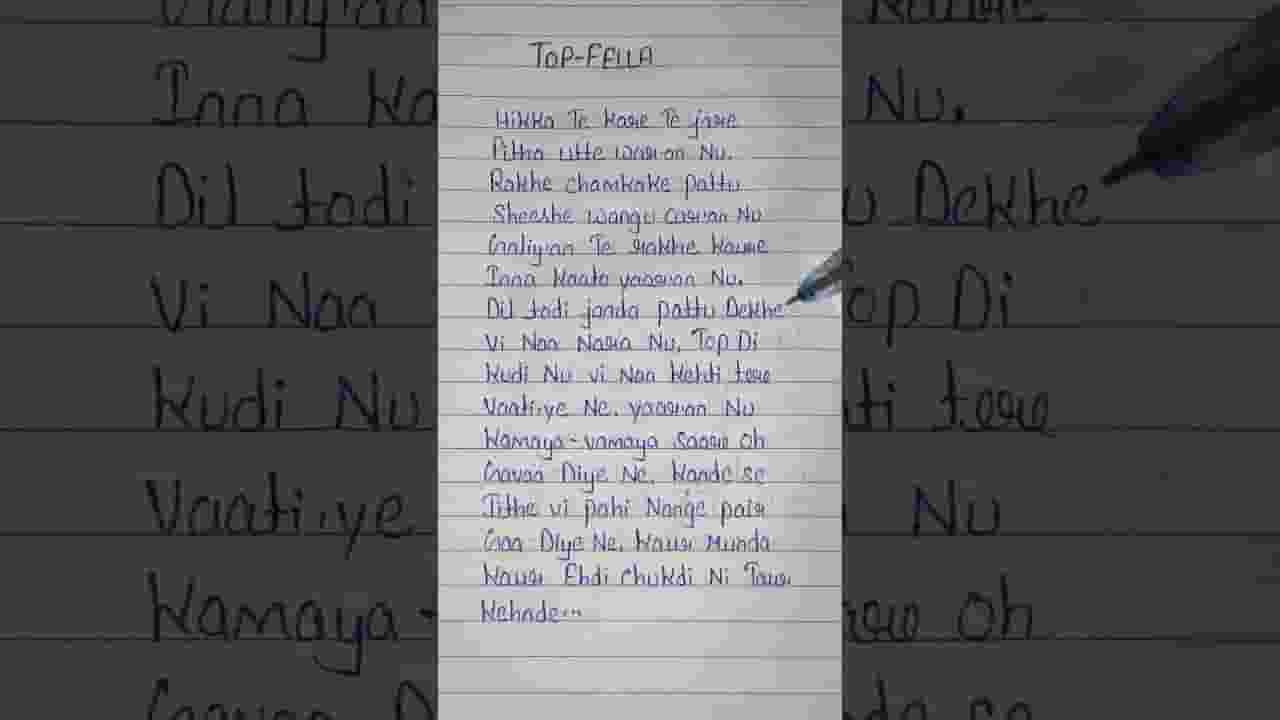 TOP-FELLA
Hikka Te kare Te jare
Pitha utte waran Nu.
Rakhe chamkake pattu
Sheeshe wangu carran Nu
Galiyan Te rakhe kaure
Inna kaata yaarran Nu.
Dil todi janda pattu Dekhe
Vi Naa Nara Nu, Top Di
kudi Nu vi Naa kehti tere
Vaati,ye Ne, yaarran Nu
Kamaya-vamaya saare oh
Gavaa Diye Ne, kande se
Jithe vi pahi Nange pair
Gaa Diye Ne, kaur Munda
kaur Ehdi chukdi Ni Taur
Kehnde...